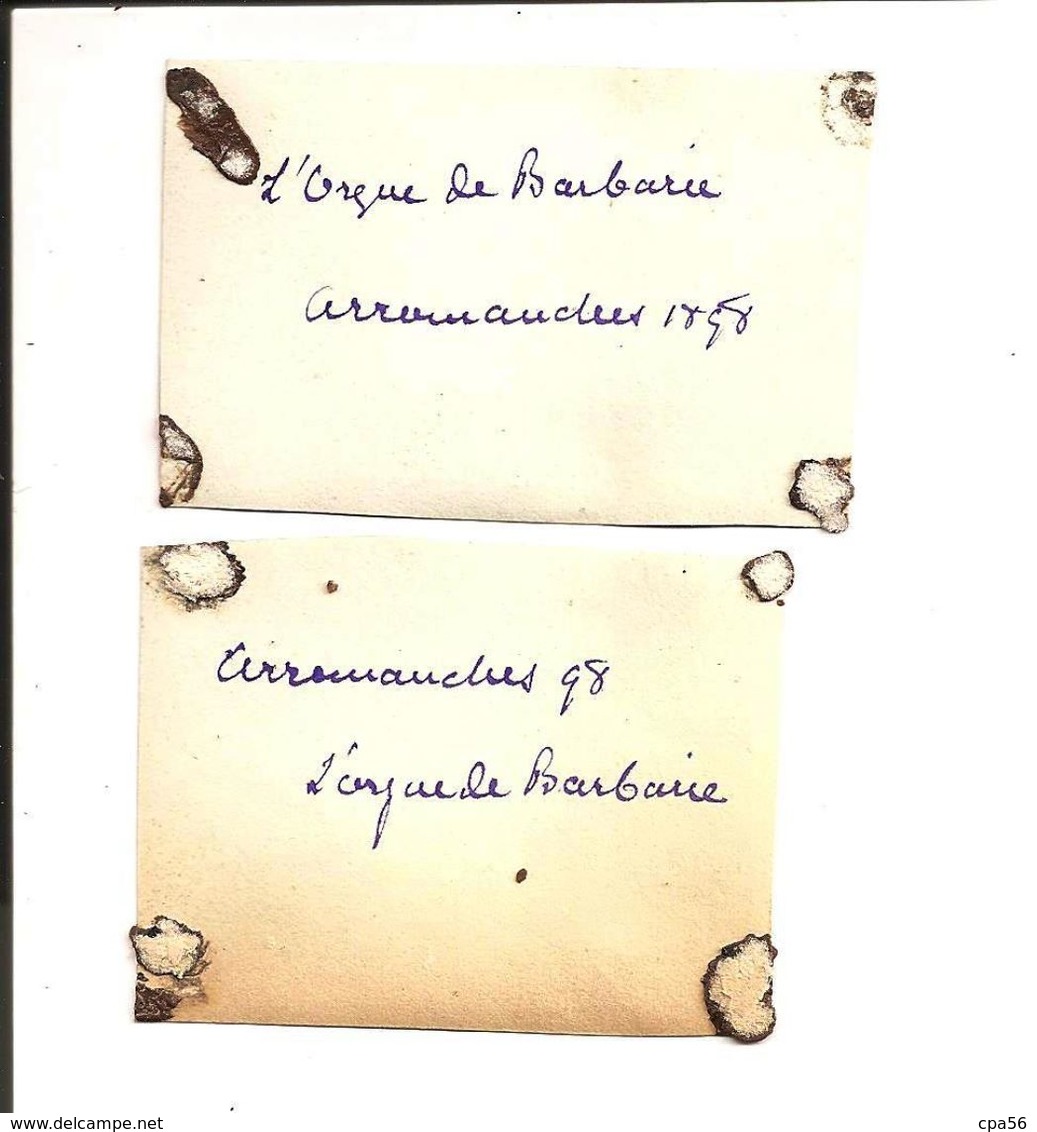 L'Orgue de Barbarie
Arromanches 1898
Arromanches 98
L'orgue de Barbarie
www.delcampe.net
cpa56